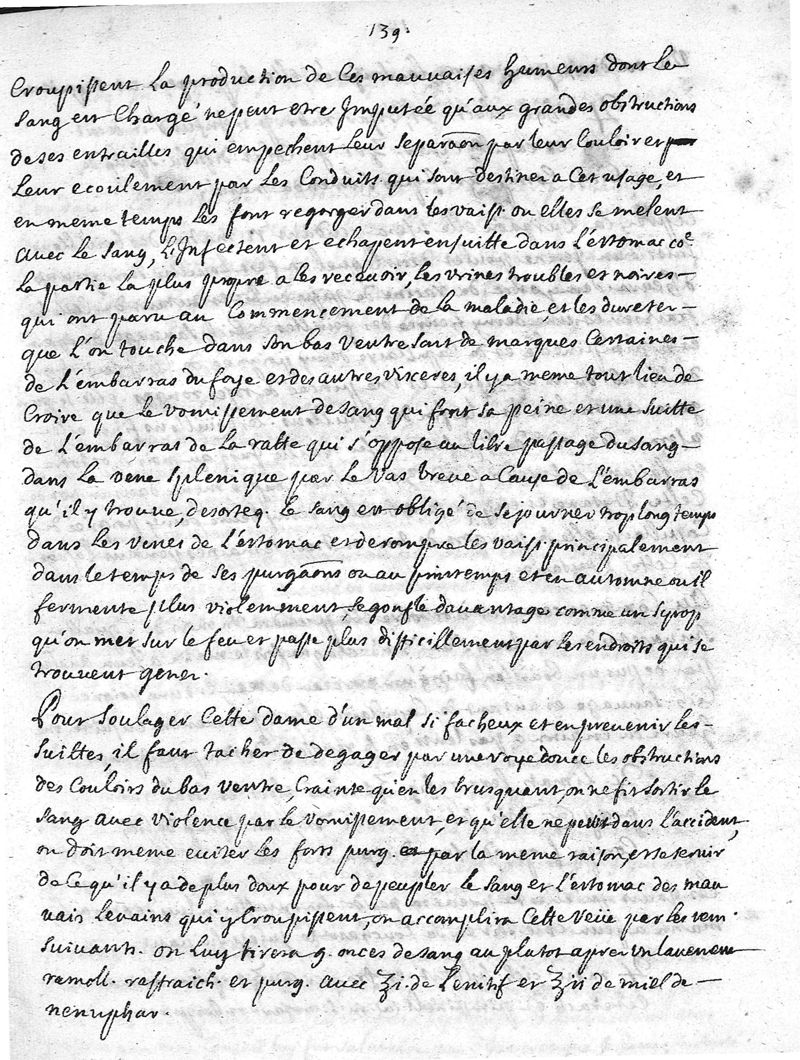 139.
Croupissent. La production de Ces mauvaises humeurs dont le
sang est Chargé ne peut etre Imputée qu'aux grandes obstructions
de ses entrailles qui empechent leur separaōn par leur Couloir et
leur ecoulement par les Conduits qui sont destinez a Cet usage, et
en meme temps les font regorger dans les vaiss. ou elles se melent
avec le sang, L'Infectent et echapent ensuitte dans l'estomac cōe
la partie la plus propre a les recevoir, les urines troubles et noires
qui ont paru au Commencement de la maladie, et les duretez
que l'on touche dans son bas ventre sont de marques Certaines
de L'embarras du foye et des autres visceres, il y a meme tout lieu de
Croire que le vomissement de sang qui font sa peine et une suitte
de L'embarras de la ratte qui s'oppose au libre passage du sang
dans la vene splenique par le vas breve a Cause de L'embarras
qu'il y trouve, desorteq. le sang est obligé de sejourner trop long temps
dans les venes de l'estomac et de rompre les vaiss. principalement
dans le temps de ses purgaōns ou au printemps et en automne ou il
fermente plus violemment, se gonfle davantage comme un syrop
qu'on met sur le feu et passe plus difficillement par les endroits qui se
trouvent genez.
Pour soulager Cette dame d'un mal si facheux et en prevenir les
suittes, il faut tacher de degager par une voye douce les obstructions
des Couloirs du bas ventre, Crainte qu'en les brusquant, on ne fit sortir le
sang avec violence par le vomissement, et qu'elle ne perit dans l'accident,
on doit meme eviter les forts purg. par la meme raison, et se servir
de Ce qu'il y a de plus doux pour depeupler le sang et l'estomac des mau
vais levains qui y Croupissent, on accomplira Cette veüe par les rem.
suivants. on luy tirera 9. onces de sang au plutot apres un lavement
ramoll. rafraich. et purg. avec ℥i. de Lenitif et ℥ii de miel de
nenuphar.